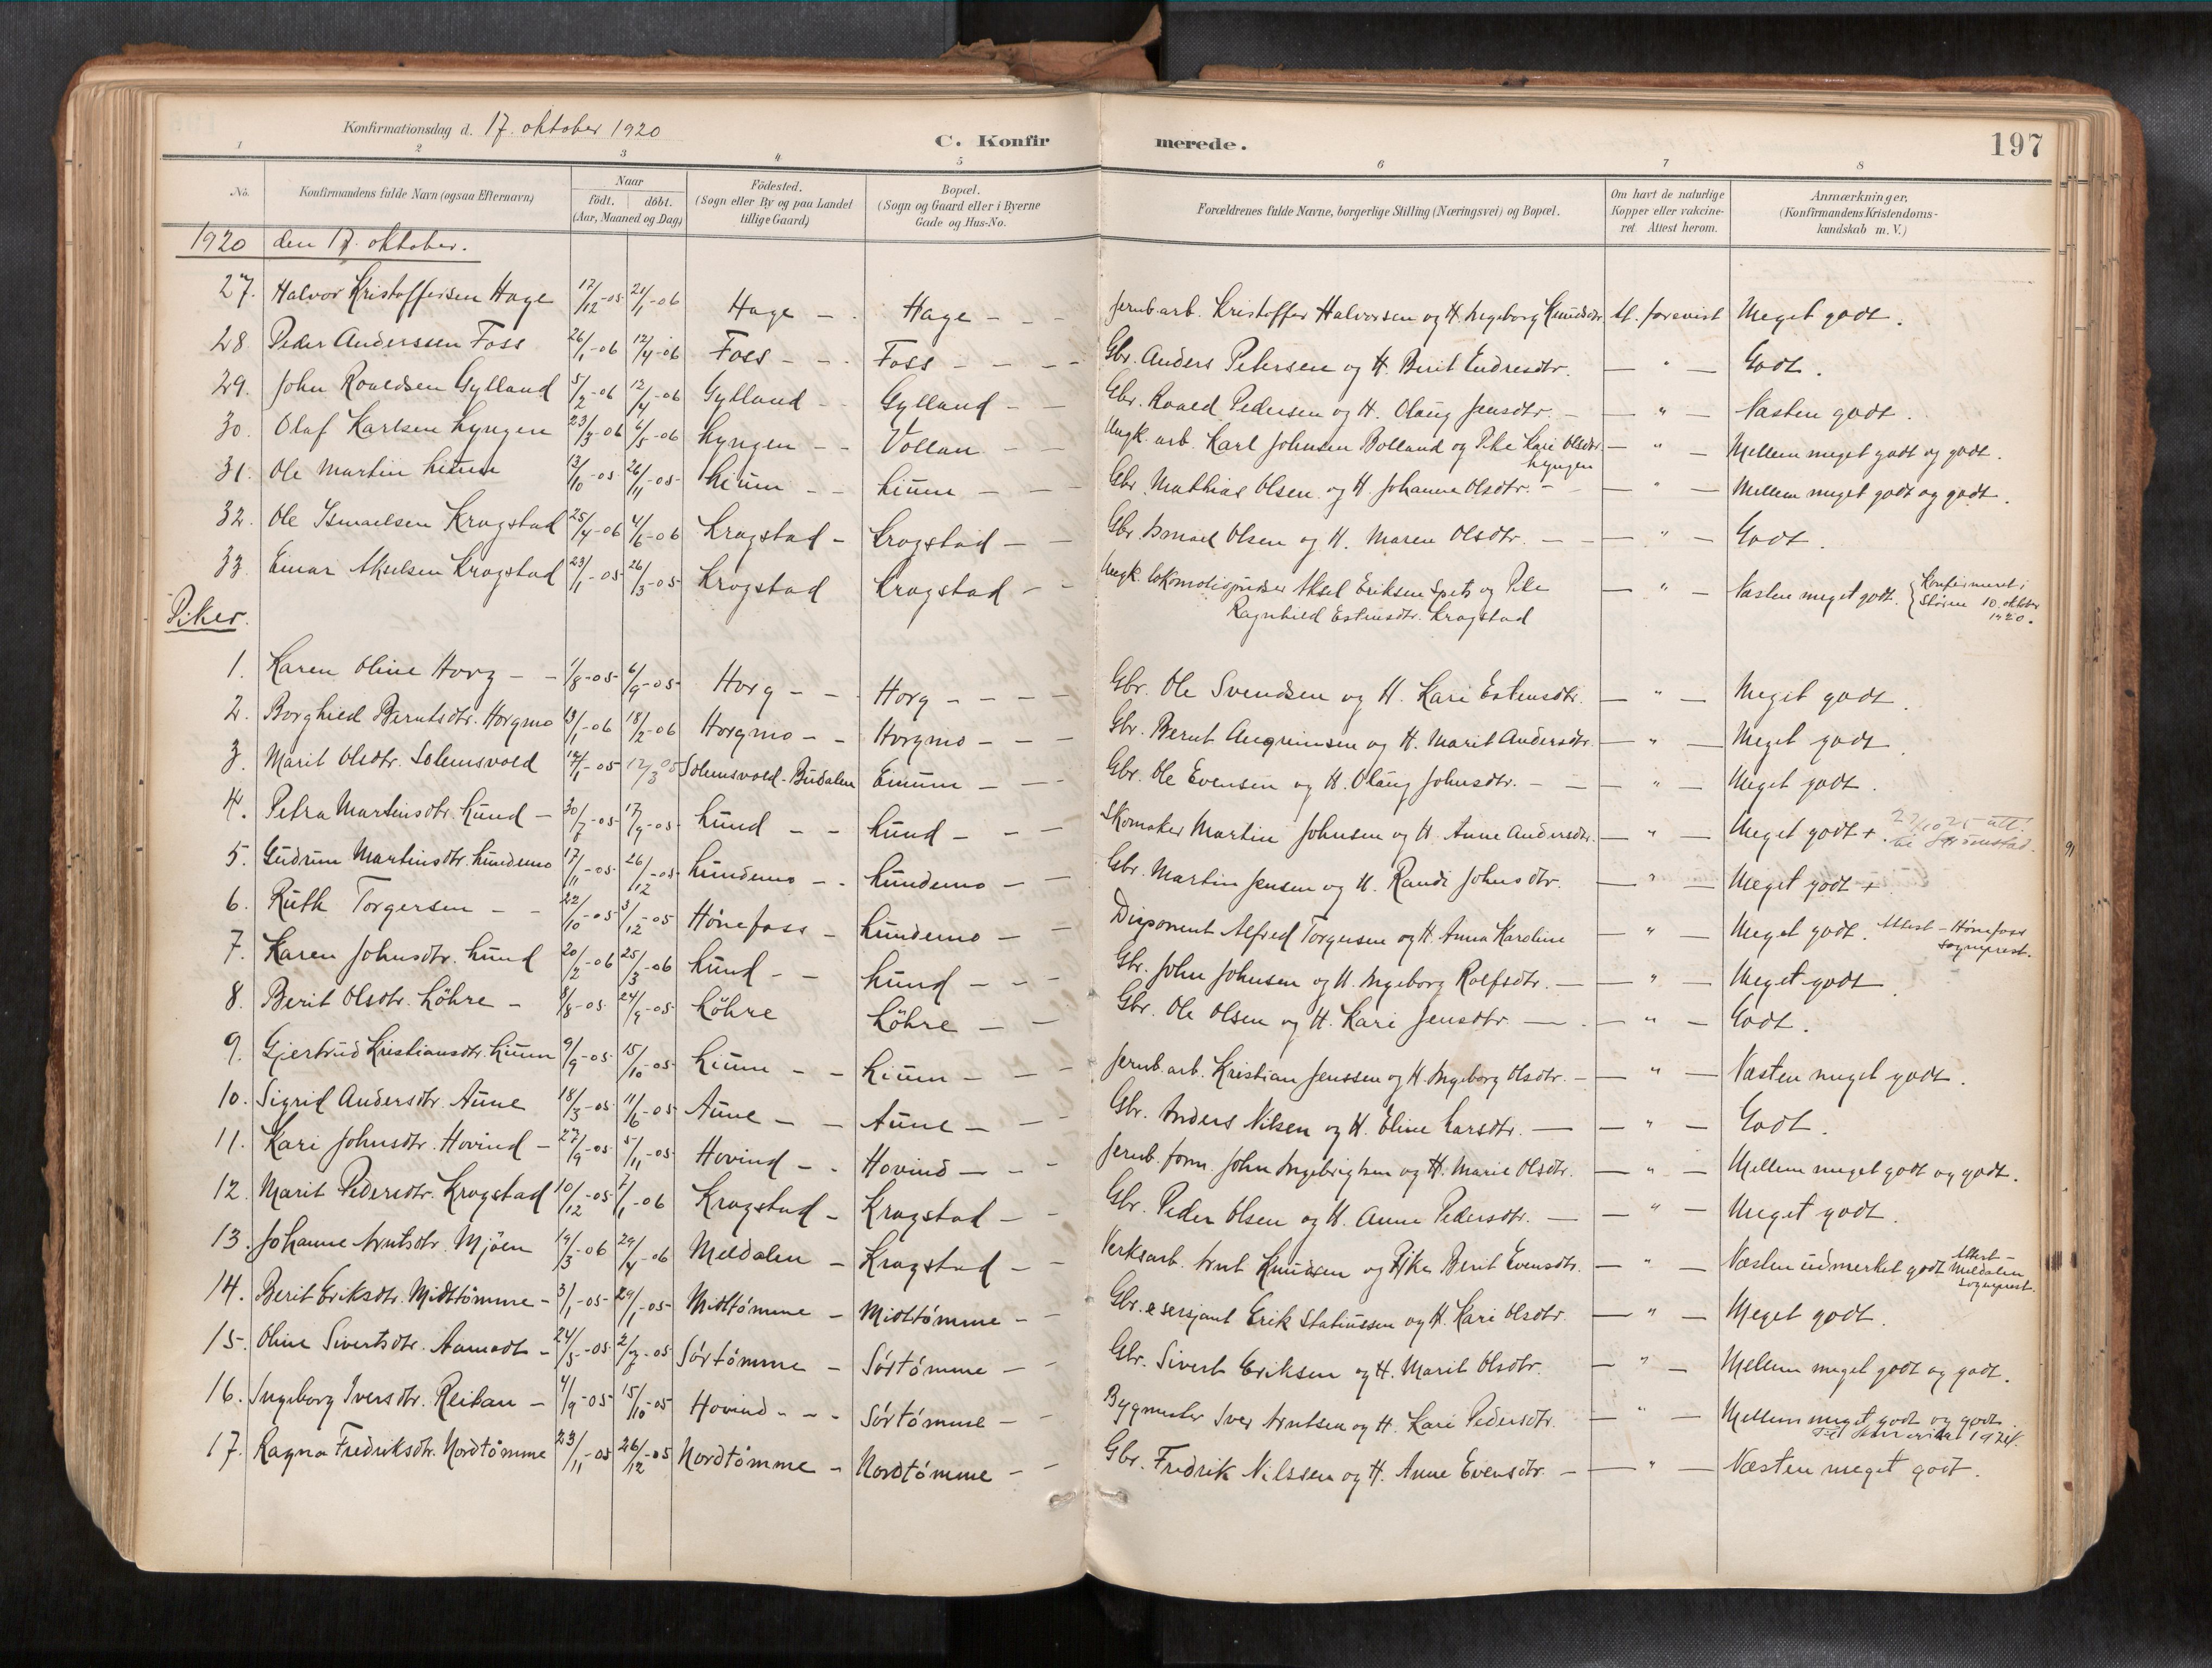 Konfirmationsdag d. 17. oktober 1920
C. Konfirmerede.
197
1 2 3 4 5 6 7 8
No. Konfirmandens fulde Navn (ogsaa Efternavn) Naar født. døbt. (Aar, Maaned og Dag) Födested. (Sogn eller By og paa Landet tillige Gaard) Bopæl. (Sogn og Gaard eller i Byerne Gade og Hus-No. Forældrenes fulde Navne, borgerlige Stilling (Næringsvei) og Bopæl. Om havt de naturlige Kopper eller vakcineret. Attest herom. Anmærkninger, (Konfirmandens Kristendomskundskab m. V.)
1920 den 17. oktober.
27. Halvor Kristoffersen Hage 17/12-05 21/1-06 Hage - - Hage - - Jernb.arb. Kristoffer Halvorsen og H. Ingeborg Knudsdtr. At. forevist Meget godt.
28 Peder Anderssen Foss 26/1-06 12/4-06 Foss - - Foss - - Gbr. Anders Petersen og H. Berit Endresdtr. — " — Godt.
29. John Roaldsen Gylland 5/2-06 12/4-06 Gylland - - Gylland - - Gbr. Roald Pedersen og H. Olaug Jensdtr. - — " — Næsten godt.
30. Olaf Karlsen Lyngen 23/3-06 6/5-06 Lyngen - - Vollan - - Ungk. arb. Karl Johnsen Bolland og Pike Kari Olsdtr. Lyngen — " — Mellem meget godt og godt.
31. Ole Martin Lium 13/10-05 26/11-05 Lium - - Lium - - Gbr. Mathias Olsen og H. Johanna Olsdtr. - — " — Mellem meget godt og godt.
32. Ole Ismaelsen Krogstad 25/4-06 4/6-06 Krogstad - Krogstad - - Gbr. Ismael Olsen og H. Maren Olsdtr. - — " — Godt.
33. Einar Akselsen Krogstad 23/1-05 26/3-05 Krogstad Krogstad - - Ungk. lokomotivpudser Aksel Eriksen Spets og Pike — " — Næsten meget godt. {Konfirmeret i
Ragnhild Estensdtr. Krogstad Støren 10. oktober 1920.
Piker.
1. Karen Oline Horg - - 1/8-05 6/9-05 Horg - - Horg - - - Gbr. Ole Svendsen og H. Kari Estensdtr. — " — Meget godt.
2. Borghild Berntsdtr. Horgmo 13/1-06 18/2-06 Horgmo - - Horgmo - - Gbr. Bernt Angrimsen og H. Marit Andersdtr. — " — Meget godt.
3. Marit Olsdtr. Solemsvold 14/1-05 12/3 05 Solemsvold - Budalen Einum - - Gbr. Ole Evensen og H. Olaug Johnsdtr. - — " — Meget godt.
4. Petra Martinsdtr. Lund - 30/7-05 17/9-05 Lund - - Lund - - - Skomaker Martin Johnsen og H. Anne Andersdtr. — " — Meget godt +.
5. Gudrun Martinsdtr. Lundemo 17/11-05 26/12-05 Lundemo - - Lundemo - - Gbr. Martin Jensen og H. Randi Johnsdtr. — " — Meget godt +
6. Ruth Torgersen - - 22/10-05 3/12-05 Hønefoss - Lundemo - - Disponent Alfred Torgersen og H. Anna Karoline — " — Meget godt. Attest - Hønefoss sogneprest.
7. Karen Johnsdtr. Lund 20/2-06 25/3-06 Lund - - Lund - - - Gbr. John Johnsen og H. Ingeborg Rolfsdtr. - — " — Meget godt.
8. Berit Olsdtr. Löhre - 8/8-05 24/9-05 Löhre Löhre - - Gbr. Ole Olsen og H. Kari Jensdtr. — — " — Godt.
9. Gjertrud Kristiansdtr. Lium 9/9-05 15/10-05 Lium - - Lium - - - Jernb.arb. Kristian Jenssen og H. Ingeborg Olsdtr. - — " — Næsten meget godt.
10. Sigrid Andersdtr. Aune 18/3-05 11/6-05 Aune - - Aune - - Gbr. Anders Nilsen og H. Eline Larsdtr. — — " — Godt.
11. Kari Johnsdtr. Hovind - 27/9-05 5/11-05 Hovind - - Hovind - - - Jernb. form. John Ingebrigtsen og H. Marie Olsdtr. — " — Mellem meget godt og godt.
12. Marit Pedersdtr. Krogstad 10/12-05 7/1-06 Krogstad - Krogstad - - Gbr. Peder Olsen og H. Anne Pedersdtr. — — " — Meget godt.
13. Johanne Arntsdtr. Mjöen 19/3-06 29/4-06 Meldalen - Krogstad - - Verksarb. Arnt Knudsen og Pike Berit Evensdtr. — " — Næsten udmerket godt Attest - Meldalen sogneprest.
14. Berit Eriksdtr. Midttømme - 3/1-05 29/1-05 Midttømme - Midttømme - - Gbr. & sersjant Erik Statiussen og H. Kari Olsdtr. — " — Meget godt.
15. Oline Sivertsdtr. Aamodt - 24/5-05 2/7-05 Sørtømme - Sørtømme - - Gbr. Sivert Eriksen og H. Marit Olsdtr. — " — Mellem meget godt og godt.
16. Ingeborg Iversdtr. Reitan - 4/9-05 15/10-05 Hovind - - - Sørtømme - - Bygmester Iver Arntsen og H. Kari Pedersdtr. — " — Mellem meget godt og godt.
Til Amerika 1924.
17. Ragna Fredriksdtr. Nordtømme 23/11-05 26/12-05 Nordtømme - Nordtømme - - Gbr. Fredrik Nilssen og H. Anne Evensdtr. - — " — Næsten meget godt.